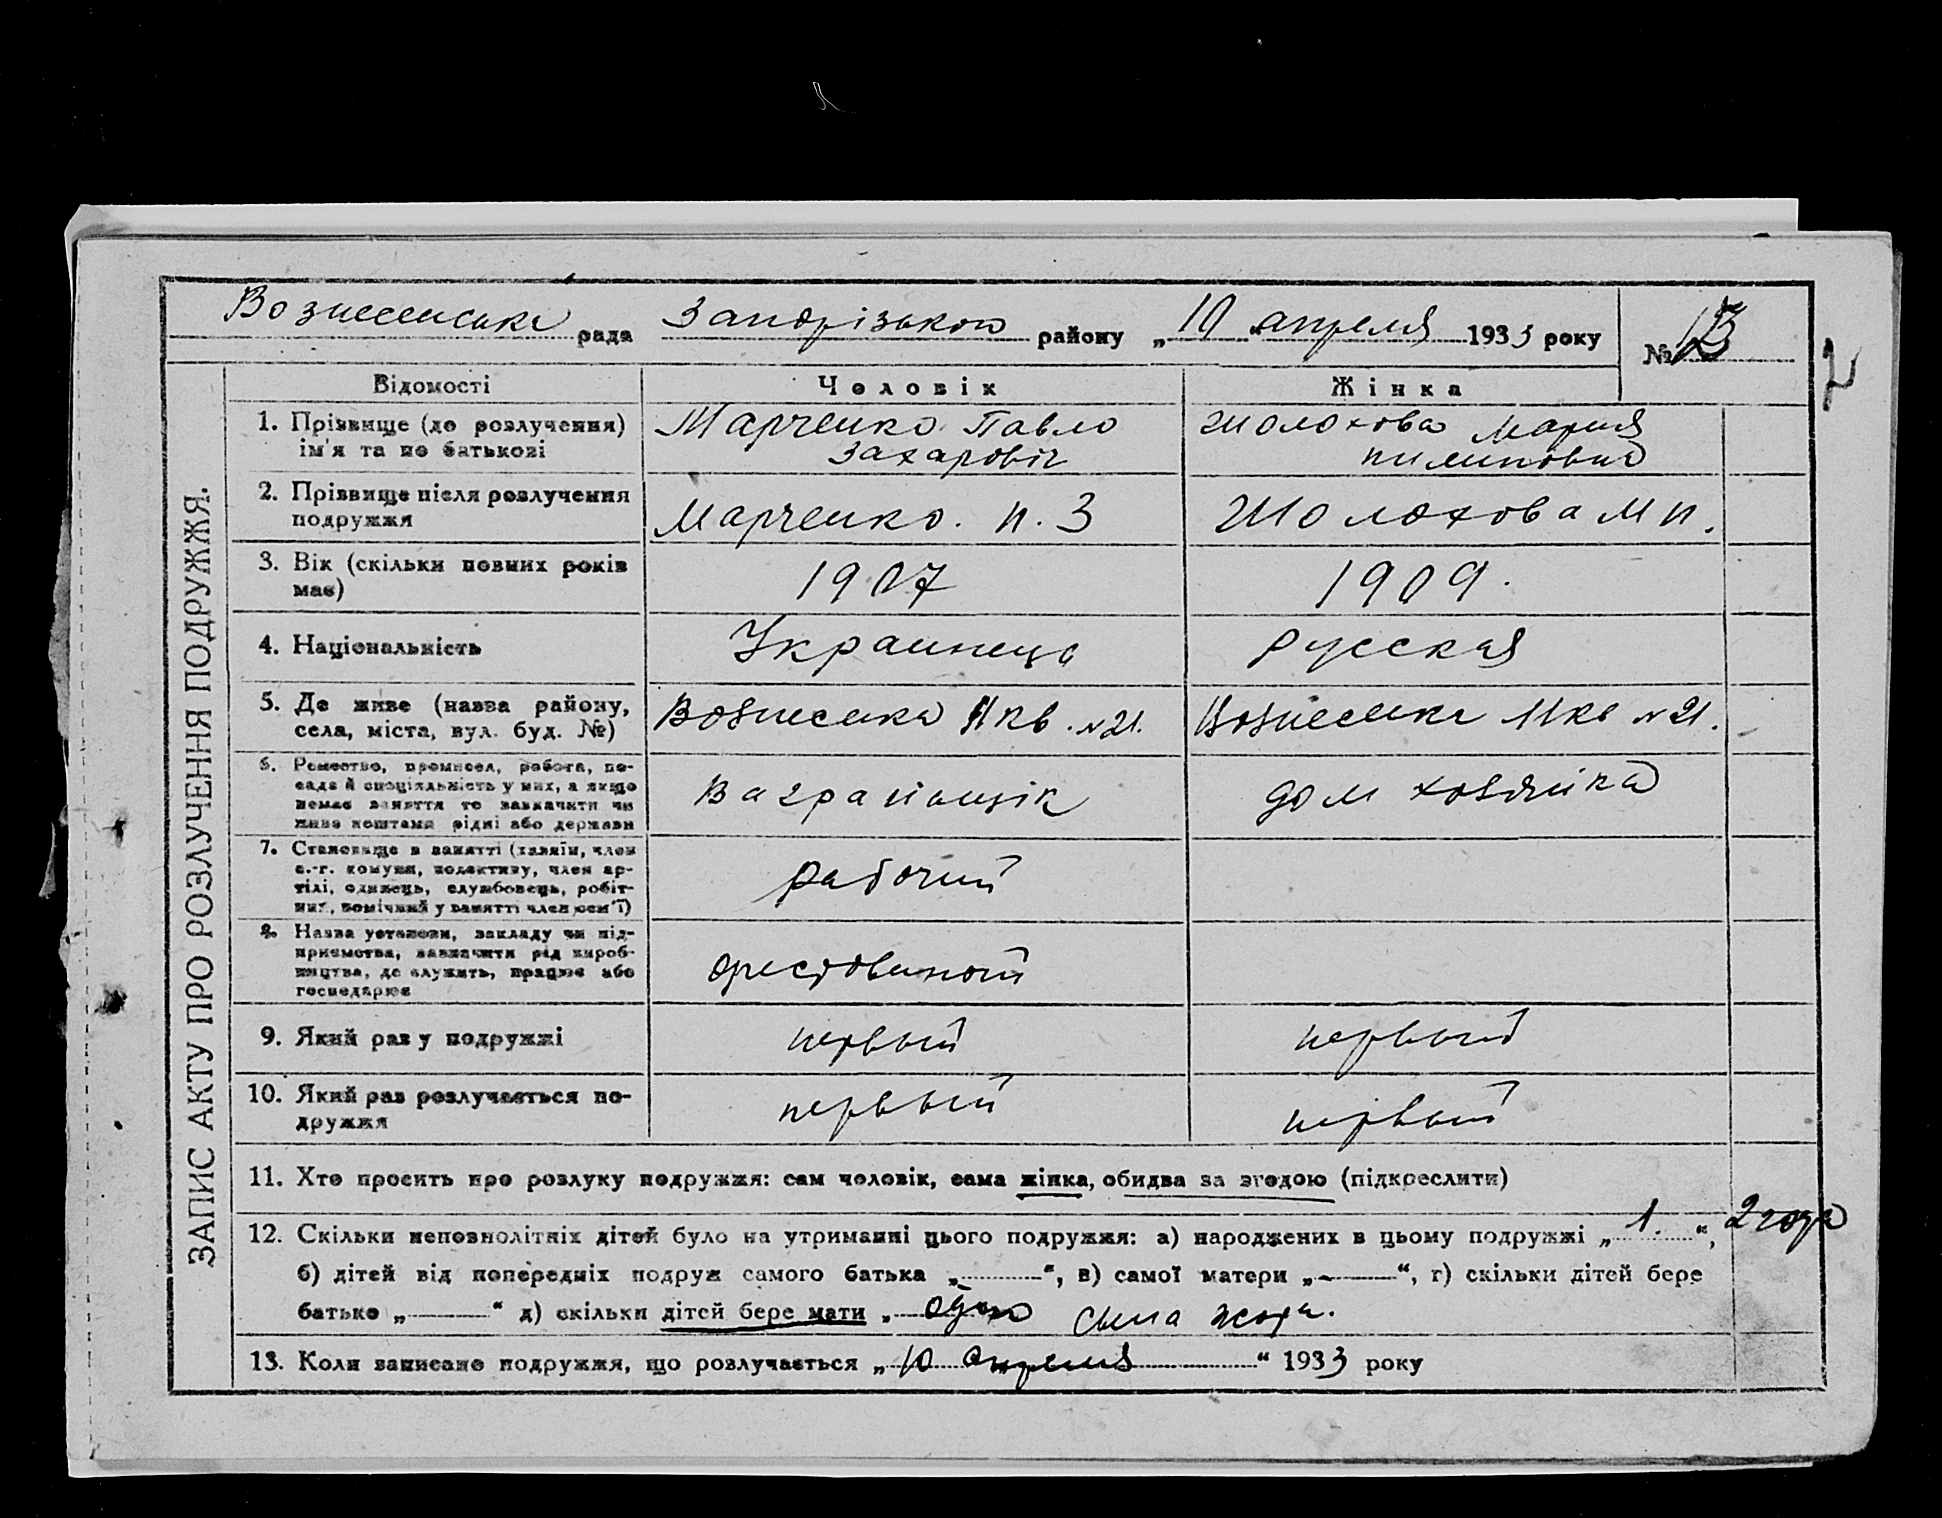 Вознесенська рада Запорізького району „10“ апреля 1933 року
№
ЗАПИС АКТУ ПРО РОЗЛУЧЕННЯ ПОДРУЖЖЯ.
Відомості Чоловік Жінка
1. Прізвище (до розлучення) Марченко Павло Шолохова Мария
ім'я та по батькові Захаровіч пилиповна
2. Прізвище після розлучення
подружжя Марченко. п. З Шолохова М п.
3. Вік (скільки повних років
має) 1907 1909.
4. Національність Украинець русская
5. Де живе (назва району,
села, міста, вул. буд. №) Вознесенка 11 кв. №21. Вознесенка 11 кв №21.
6. Ремество, промисел, робота, по-
сада й спеціяльність у них, а якщо
немає заняття то зазначити чи
живе коштами рідні або держави
Ваграньщік дом хозяйка
7. Становище в занятті (хазяїн, член
с.-г. комуни, колективу, член ар-
тілі, одинець, службовець, робіт-
ник, помічний у занятті член сем'ї)
рабочий
8. Назва установи, закладу чи під-
приємства, зазначити рід вироб-
ництва, де служить, працює або
господарює
9. Який раз у подружжі первый первый
10. Який раз розлучається по-
дружжя первый первый
11. Хто просить про розлуку подружжя: сам чоловік, сама жінка, обидва за згодою (підкреслити)
12. Скільки неповнолітніх дітей було на утриманні цього подружжя: а) народжених в цьому подружжі „1.“, 2 года
б) дітей від попередніх подруж самого батька „—“, в) самої матери „—“, г) скільки дітей бере
батько „—“ д) скільки дітей бере мати „ сина
13. Коли записано подружжя, що розлучається „10 апреля“ 1933 року